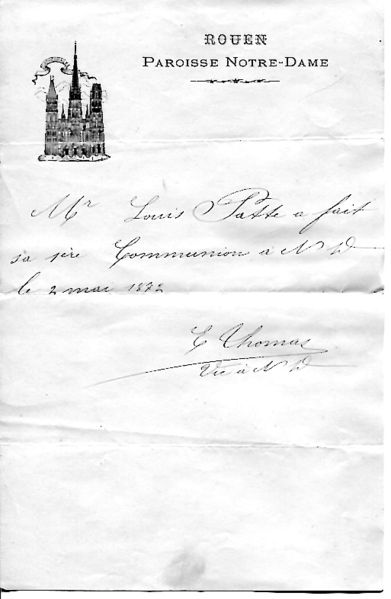 ROUEN
PAROISSE NOTRE-DAME
Mr Louis Patte a fait
sa 1ère Communion à N D
le 2 mai 1872
E Thomas
Vic à N D